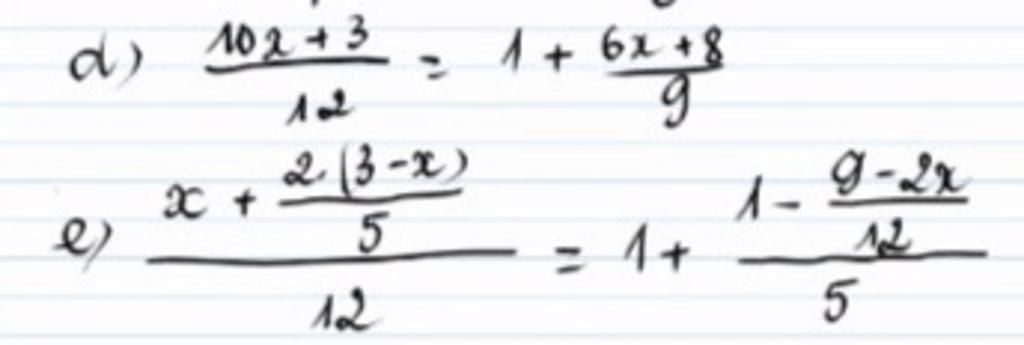 d) \frac{10x + 3}{12} = 1 + \frac{6x + 8}{9}
e) \frac{x + \frac{2.(3 - x)}{5}}{12} = 1 + \frac{1 - \frac{9 - 2x}{12}}{5}